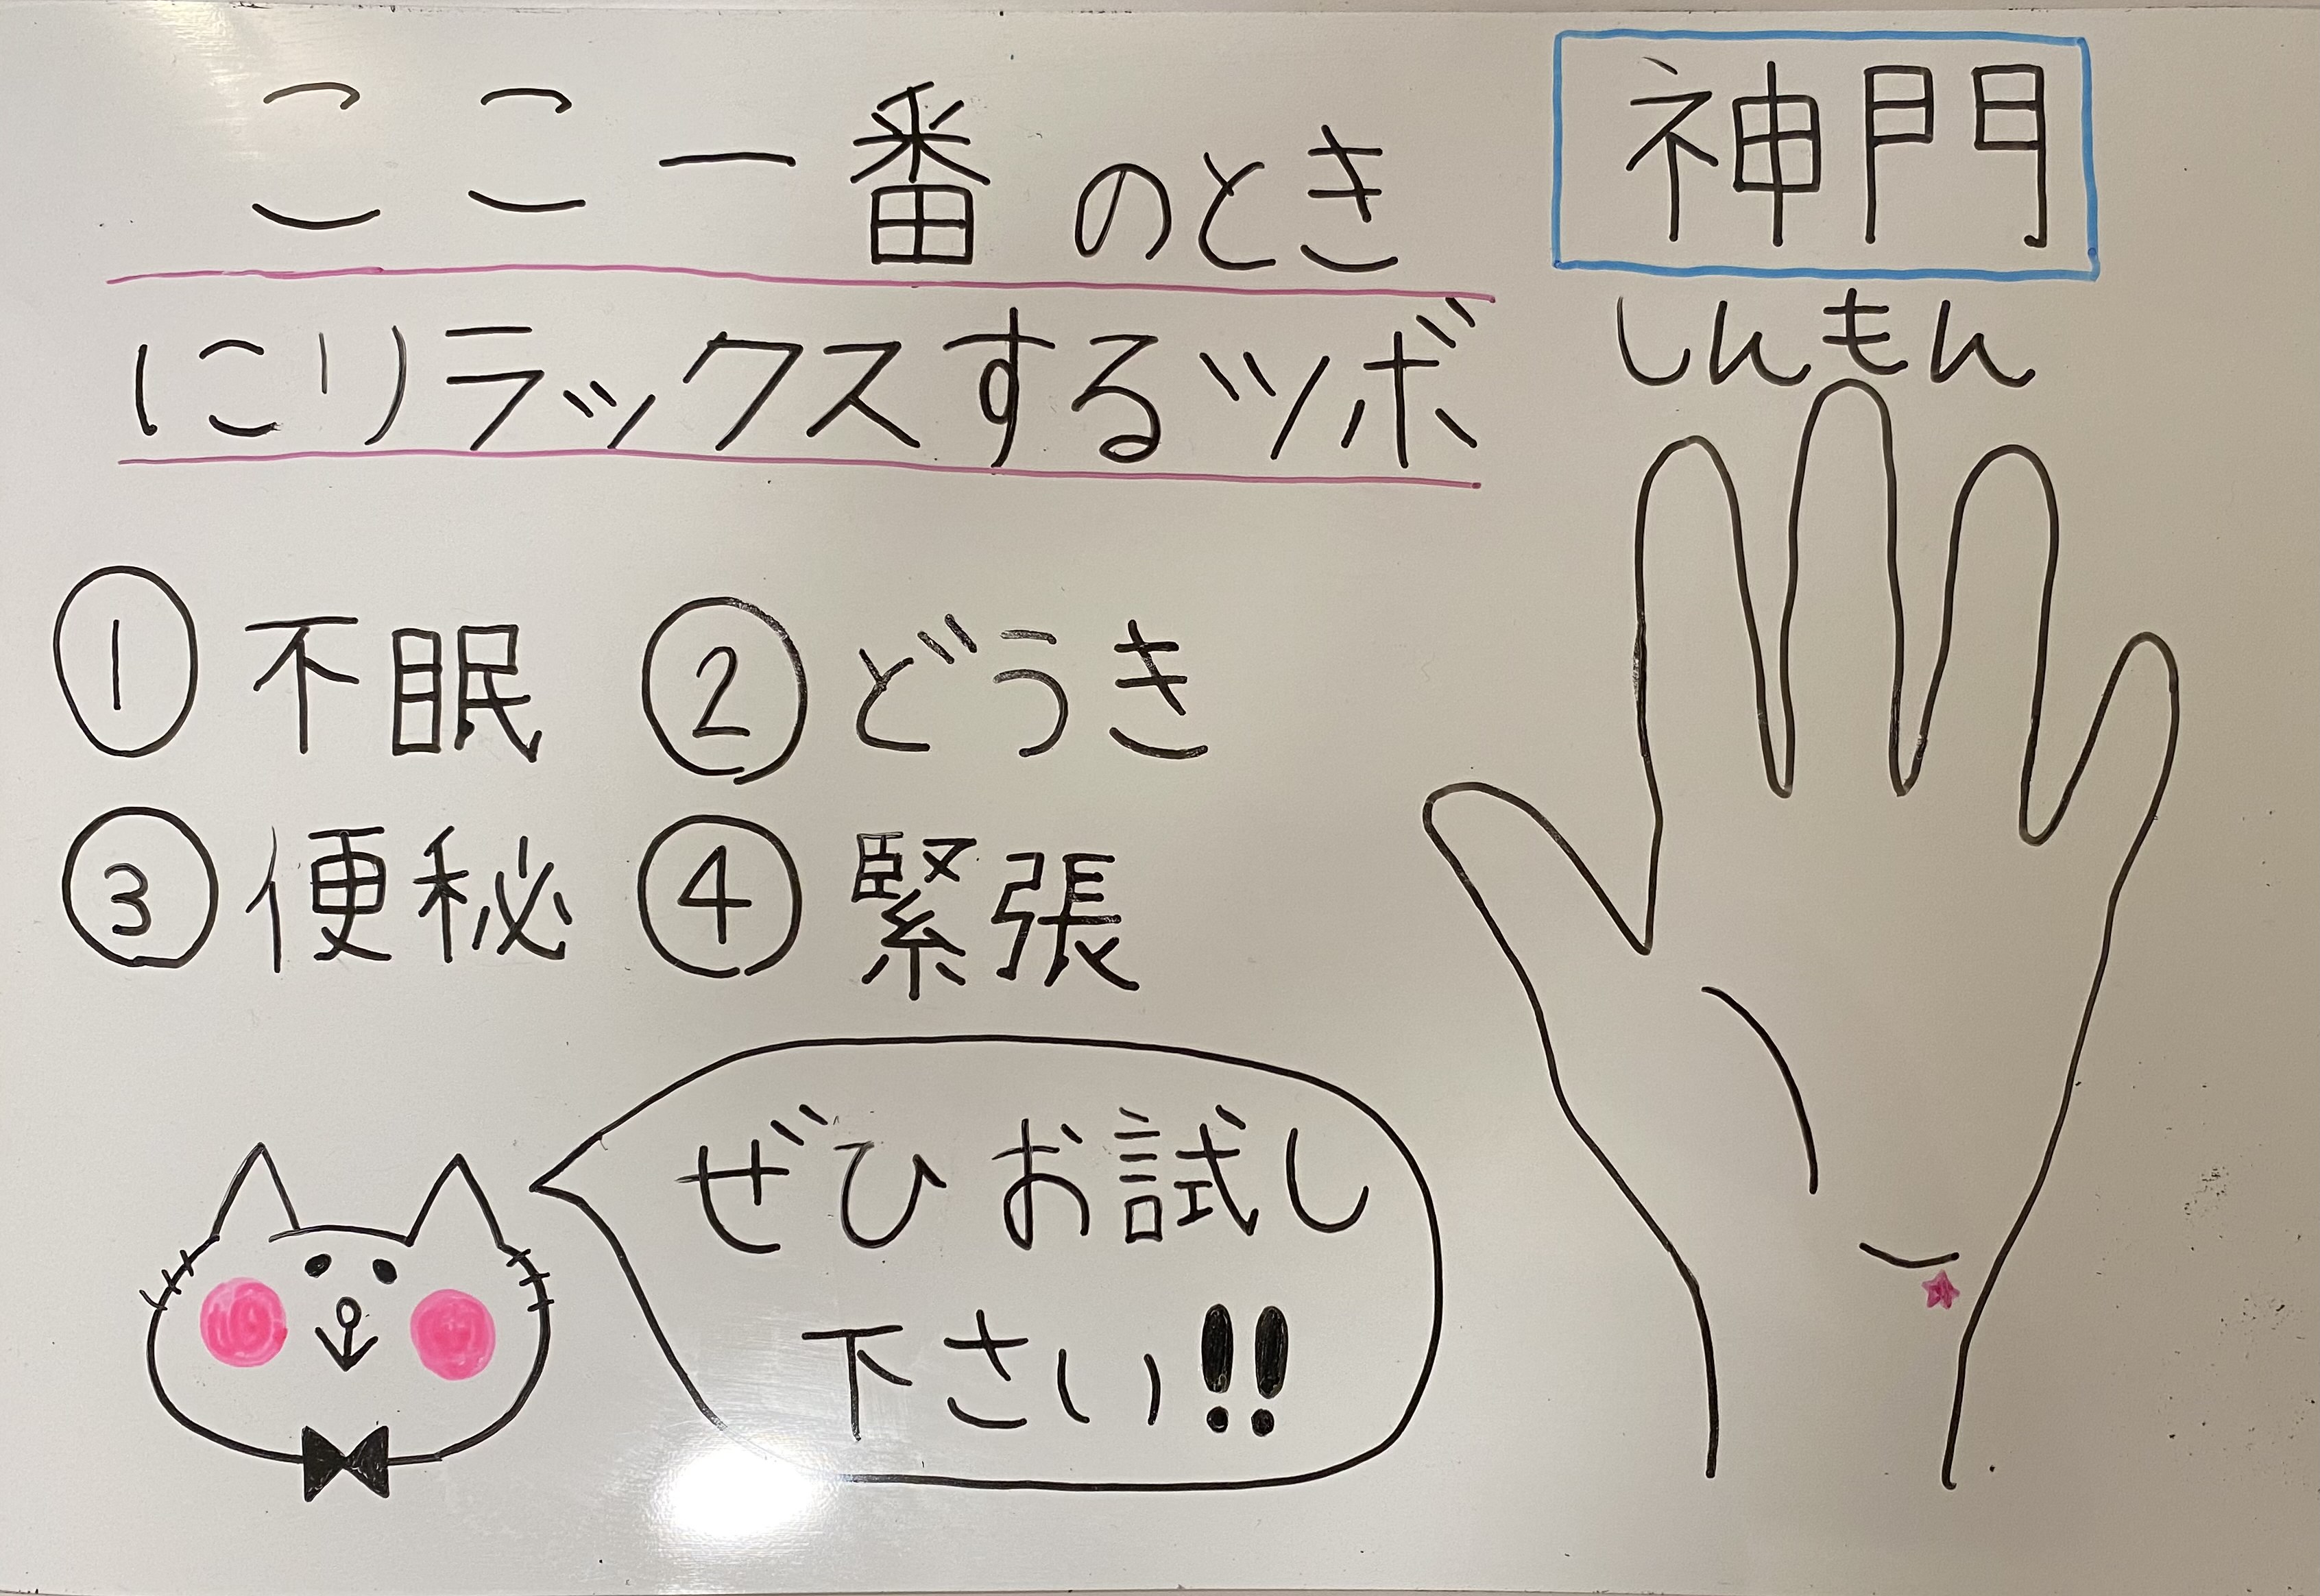 ここ一番のとき
にリラックスするツボ
神門
しんもん
① 不眠 ② どうき
③ 便秘 ④ 緊張
ぜひお試し
下さい!!